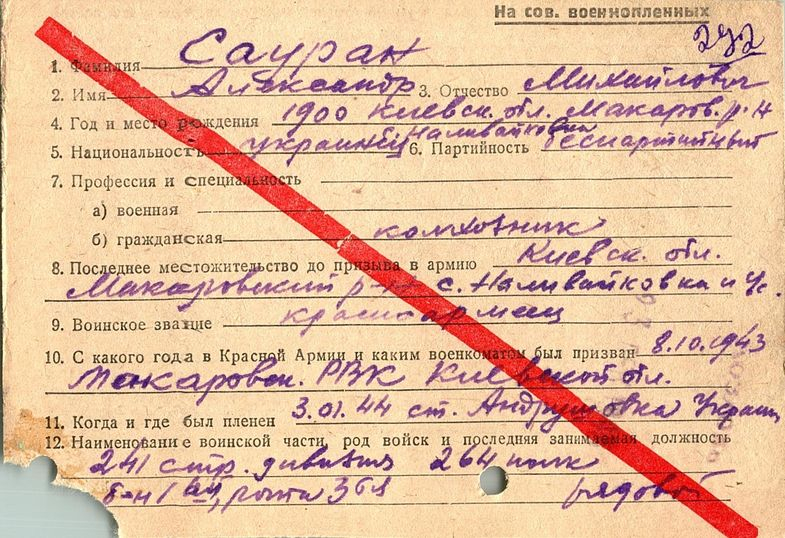 На сов. военнопленных
292
1. Фамилия Сауран
2. Имя Александр 3. Отчество Михайлович
4. Год и место рождения 1900 Киевск. обл. Макаров. р-н
Наливайковка
5. Национальность украинец 6. Партийность беспартийный
7. Профессия и специальность
а) военная
б) гражданская колхозник
8. Последнее местожительство до призыва в армию Киевск. обл.
Макаровский р-н с. Наливайковка
9. Воинское звание красноармеец
10. С какого года в Красной Армии и каким военкоматом был призван 8.10.1943
Макаровск. РВК Киевской обл.
11. Когда и где был пленен 3.01.44 ст. Андрушовка Украин
12. Наименование воинской части, род войск и последняя занимаемая должность
241 стр. дивизия 264 полк
б-н 1ый, рота 3ья рядовой